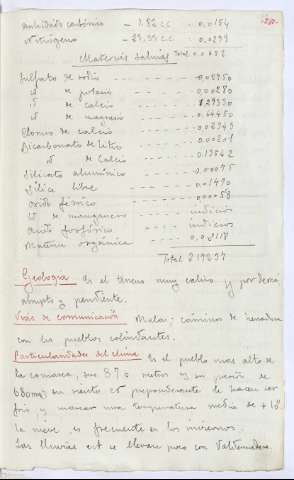 Anhidrido carbónico — 7.82 c.c. - 0.0154
Nitrógeno — 23.99 c.c. - 0.0299
Materias salinas Total 0.0452
Sulfato de sodio 0,02950
id de potasio 0,00280
id de calcio
id de magnesio 0,64450
Cloruro de calcio 0,02343
Bicarbonato de Litio
id de Calcio 0,13862
Silicato alumínico 0,00075
Sílice libre 0,01490
Oxido férrico 0,00058
id de manganeso indicios
Acido fosfórico indicios
Materia orgánica
Total
Geología Es el terreno muy calizo y por demás
abrupto y pendiente.
Vías de comunicación Malas; caminos de herradura
con los pueblos colindantes.
Particularidades del clima Es el pueblo más alto de
la comarca, sus 870 metros y su presión de
en viento preponderante le hacen ser
frío, y marcar una temperatura media de
la nieve es frecuente en los inviernos.
Las lluvias